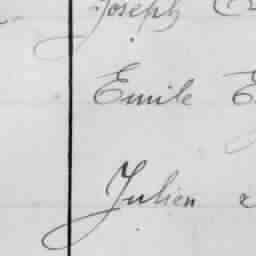 Joseph
Emile E
Julien